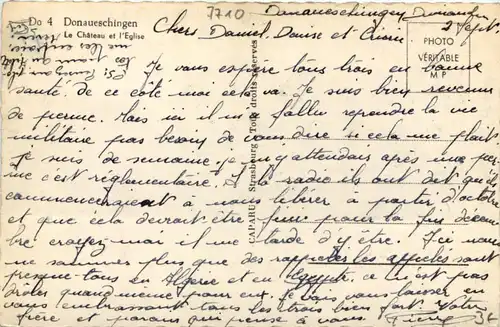 7710
Do 4 Donaueschingen
Le Château et l'Eglise
Donaueschingen
2 Sept.
Chers Daniel, Denise et
PHOTO
VÉRITABLE
M P
CAP Strasbourg Tous droits réservés
Je vous espère tous trois en bonne
santé, de ce coté moi cela va. Je suis bien revenu
de perme. Mais ici il m'a fallu reprendre la vie
militaire pas besoin de vous dire si cela me plait
je suis de semaine, je m'y attendais après une per
me c'est réglementaire. A la radio ils ont dit qu'ils
commenceraient à nous libérer à partir d'octobre
et que cela devrait être fini pour la fin décem
bre croyez-moi il me tarde d'y être. Ici nous
ne sommes plus que des rappelés les appelés sont
presque tous en Algérie et en Egypte, ce n'est pas
drôles quand même pour eux. Je vais vous laisser en
vous embrassant tous les trois bien fort. Votre
frère et parrain qui pense à vous. Pierre